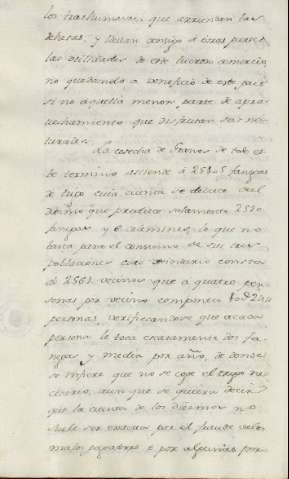 los trashumantes que arriendan las
dehesas, y llevan consigo a otras partes
las utilidades de este
no quedando a beneficio de este pais
si no aquella menor parte de apro
vechamiento que disfrutan sus na
turales.
La cosecha de Granos de todo es
te termino asciende a fanegas
de trigo cuia cuenta se deduce del
Diezmo que produce solamente
fanegas y lo que no
basta para el consumo de sus
poblaciones cuio vecindario consta
de 2561 vecinos que a quatro per
sonas por vecino componen
personas, verificandose que a cada
persona le toca escasamente dos fa
negas y media por año, de donde
se infiere que no se coge el trigo ne
cesario, aun que se quiera decir
que la cuenta de los diezmos no
suele ser exacta por el fraude de los
malos pagadores o por algunas por